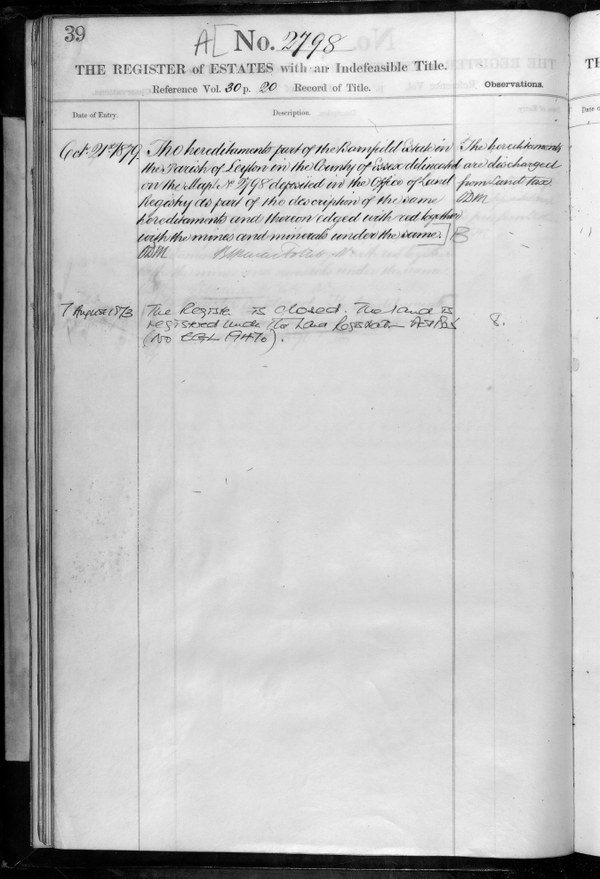 39
A[ No. 2798
THE REGISTER of ESTATES with an Indefeasible Title.
Reference Vol. 30 p. 20 Record of Title.
Observations.
Date of Entry.
Description.
Date o
TH
Oct. 21st 1879. The hereditaments part of the Barnfield Estate in
the Parish of Leyton in the County of Essex delineated
on the Map No. 2798 deposited in the Office of Land
Registry as part of the description of the same
hereditaments and thereon edged with red together
with the mines and minerals under the same.] B
The hereditaments
are discharged
from Land tax
7 August 1973 The Register is closed. The land is
registered under the Land Registration Act 1925
(No EGL 19470).
8.